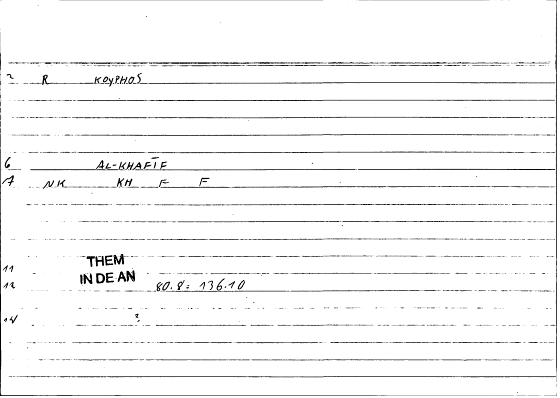 2 R KOYPHOS
6 AL-KHAFĪF
7 NK KH F F
THEM
11
IN DE AN
12 80.8: 136.10
14 ?